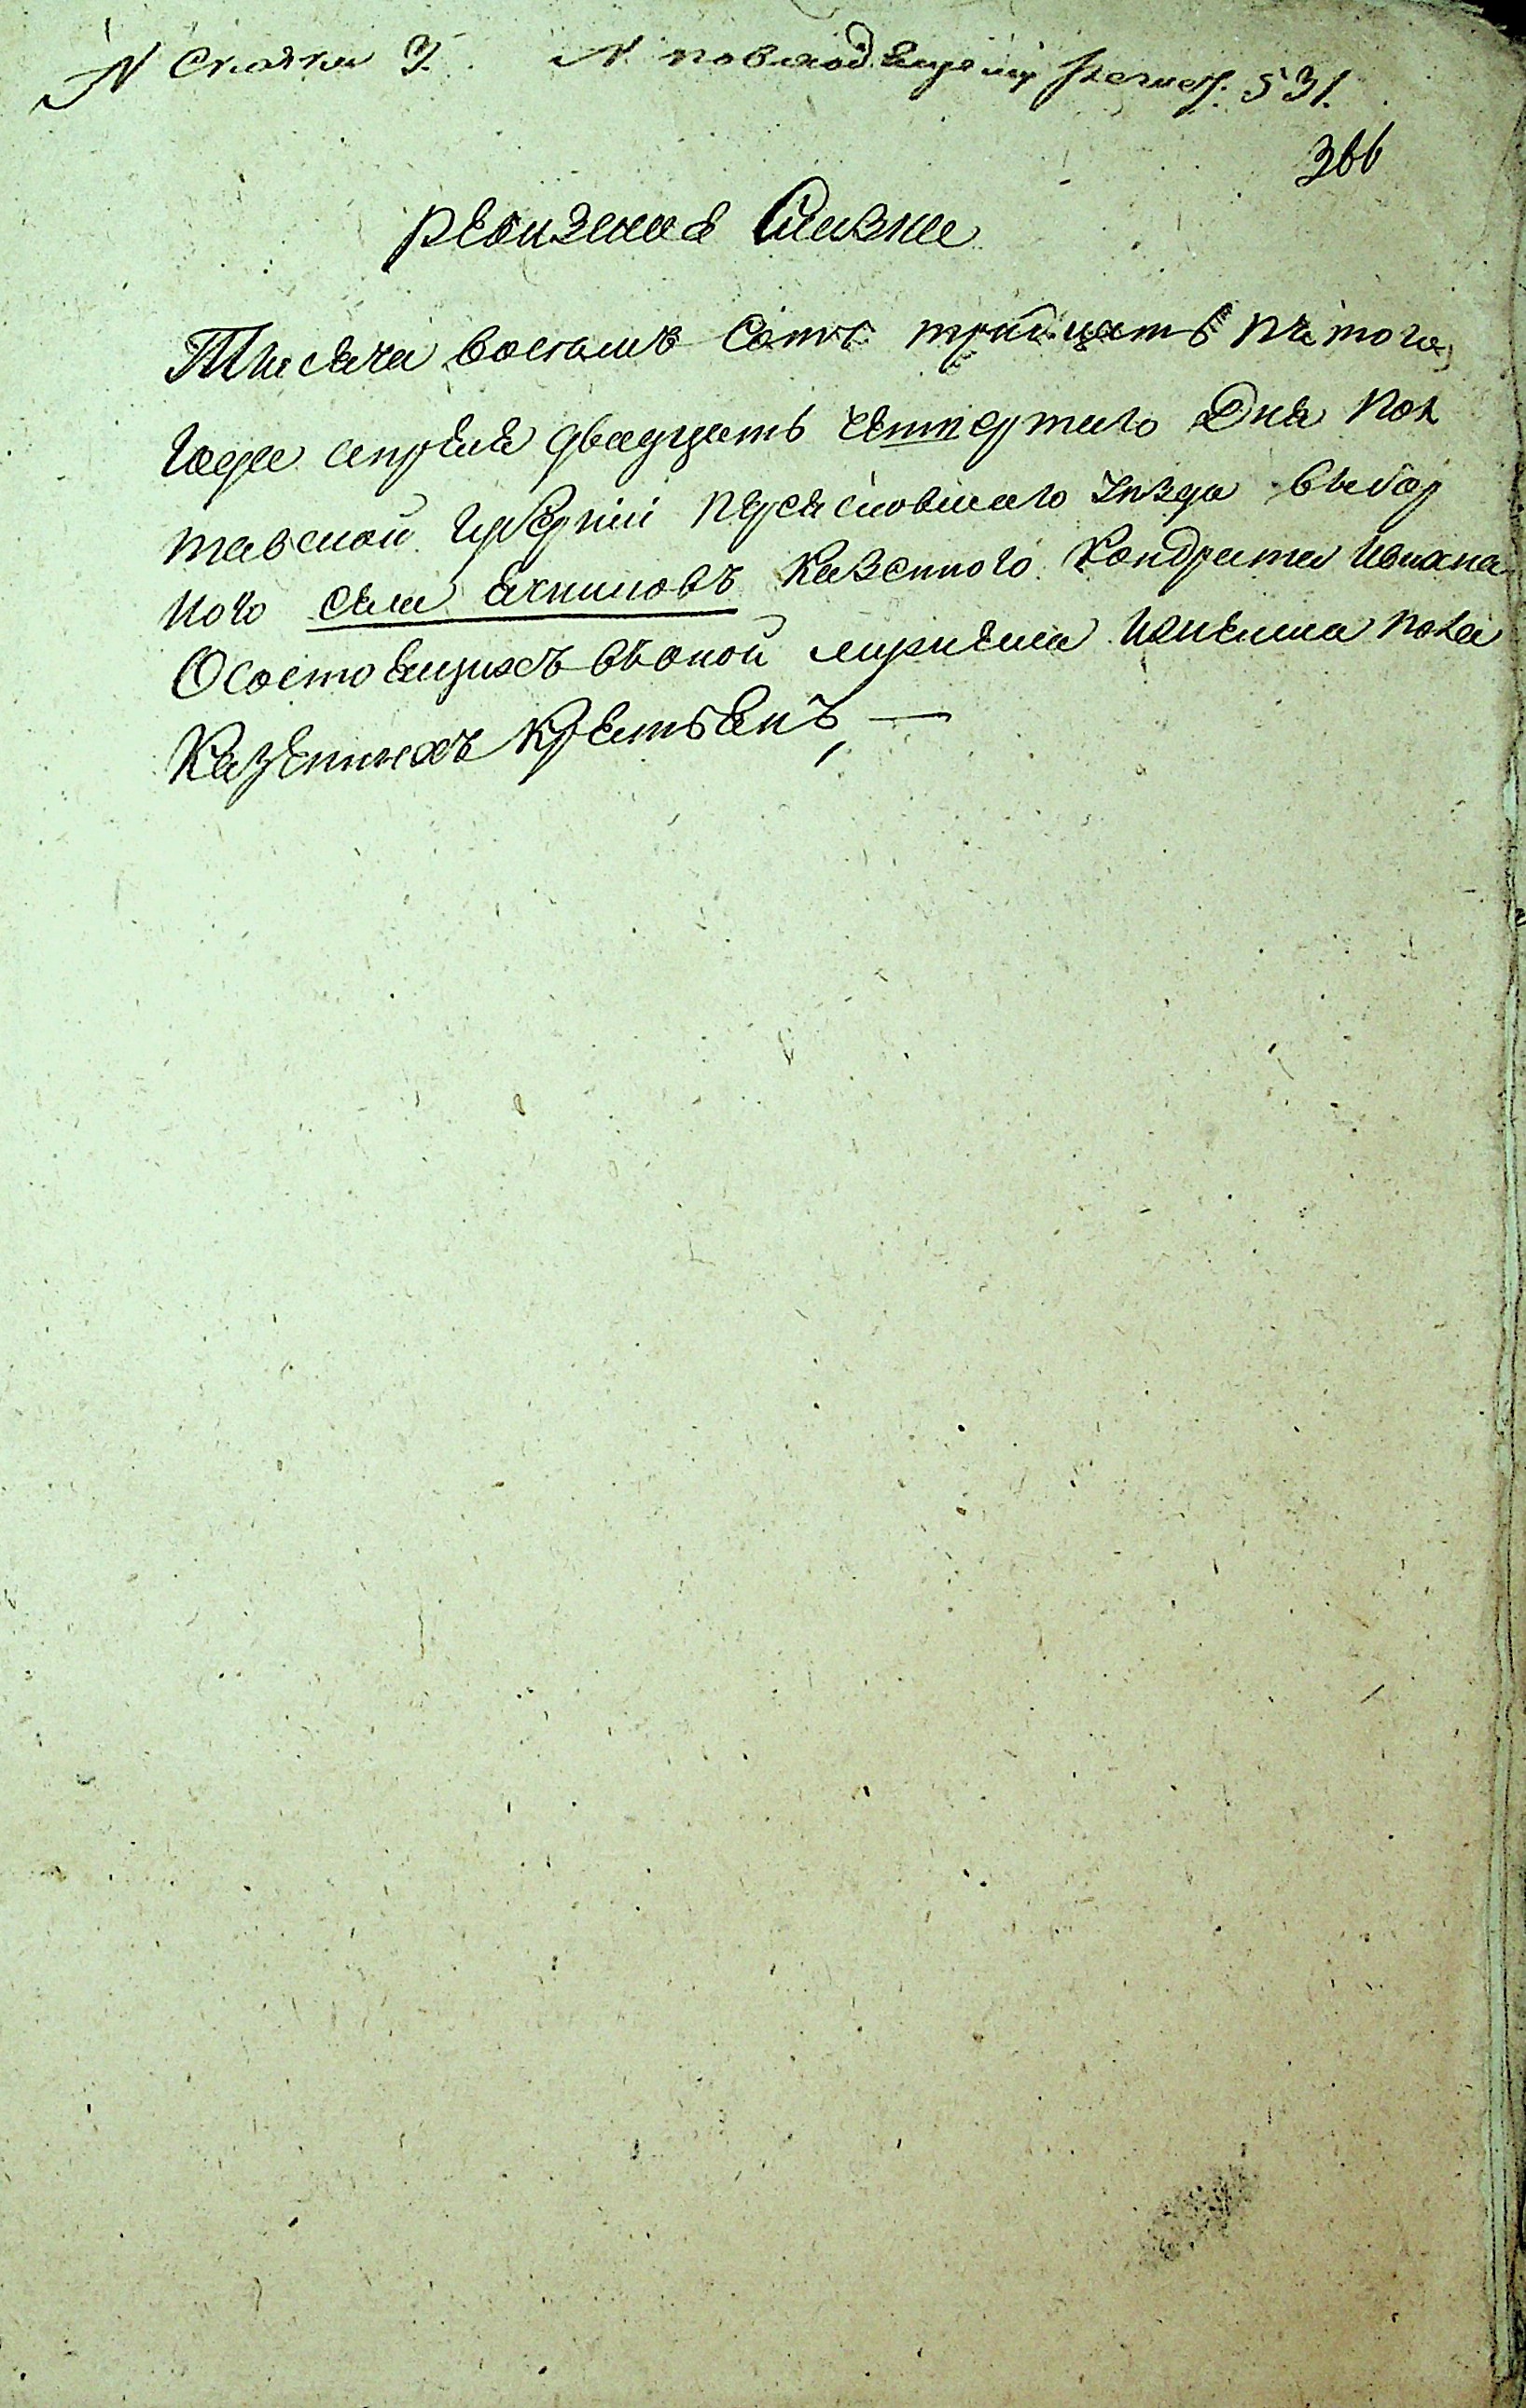 N Сказки 3. N по входящему реэст: 531.
366
ревизская Сказка
Тысяча восемъ Сотъ тридцать пятого
Года апреля двадцать четвертого Дня Пол
тавской губернии переясловского уезда выбор
ного села ячниковъ казенного Кондрата Ивана
О состоящихъ въ оной мужеска и женска пола
Казенныхъ крестьянъ, —